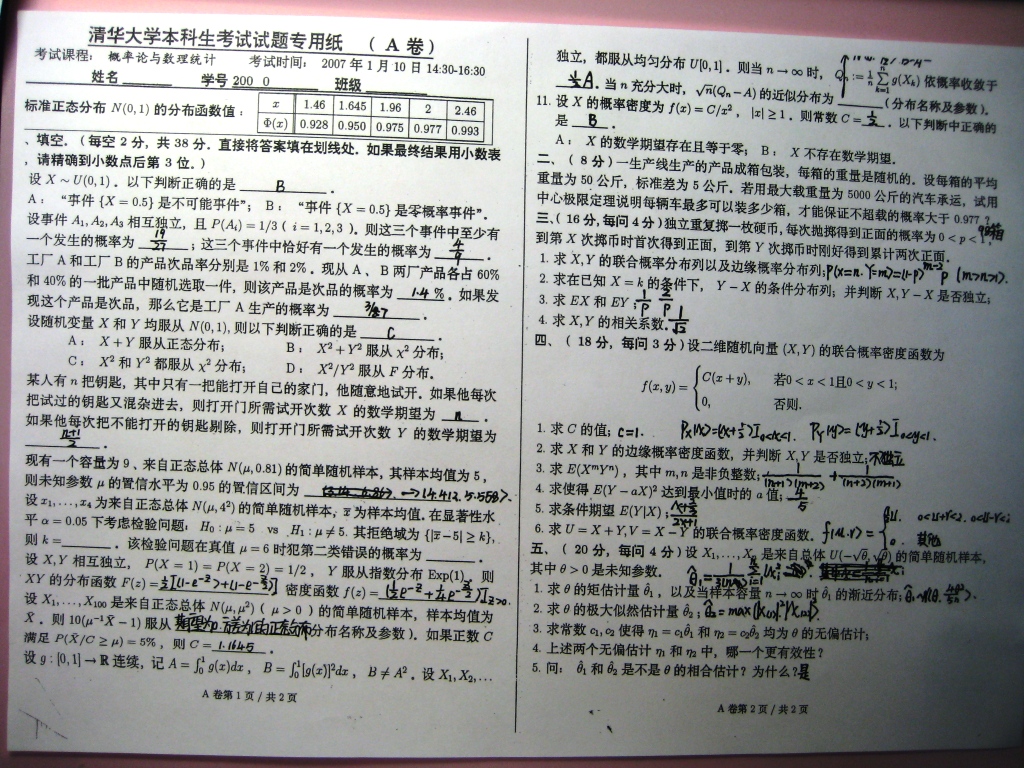 清华大学本科生考试试题专用纸 （ A 卷）
考试课程： 概率论与数理统计 考试时间： 2007 年 1 月 10 日 14:30-16:30
姓名 学号 200 0 班级
标准正态分布 N(0,1) 的分布函数值：
x 1.46 1.645 1.96 2 2.46
Φ(x) 0.928 0.950 0.975 0.977 0.993
、填空.（每空 2 分，共 38 分. 直接将答案填在划线处. 如果最终结果用小数表
，请精确到小数点后第 3 位.）
设 X ~ U(0,1). 以下判断正确的是 B .
A： “事件 {X = 0.5} 是不可能事件”； B： “事件 {X = 0.5} 是零概率事件”.
设事件 A₁, A₂, A₃ 相互独立，且 P(Aᵢ) = 1/3 ( i = 1, 2, 3 ). 则这三个事件中至少有
一个发生的概率为 19/27 ；这三个事件中恰好有一个发生的概率为 4/9 .
工厂 A 和工厂 B 的产品次品率分别是 1% 和 2%. 现从 A 、 B 两厂产品各占 60%
和 40% 的一批产品中随机选取一件，则该产品是次品的概率为 1.4 % . 如果发
现这个产品是次品，那么它是工厂 A 生产的概率为 3/7 .
设随机变量 X 和 Y 均服从 N(0,1), 则以下判断正确的是 C .
A： X + Y 服从正态分布； B： X² + Y² 服从 χ² 分布；
C： X² 和 Y² 都服从 χ² 分布； D： X²/Y² 服从 F 分布.
某人有 n 把钥匙，其中只有一把能打开自己的家门，他随意地试开. 如果他每次
把试过的钥匙又混杂进去，则打开门所需试开次数 X 的数学期望为 n .
如果他每次把不能打开的钥匙剔除，则打开门所需试开次数 Y 的数学期望为
(n+1)/2 .
现有一个容量为 9 、来自正态总体 N(μ, 0.81) 的简单随机样本，其样本均值为 5 ，
则未知参数 μ 的置信水平为 0.95 的置信区间为 (4.412, 5.588).
设 x₁, …, x₄ 为来自正态总体 N(μ, 4²) 的简单随机样本， x̄ 为样本均值. 在显著性水
平 α = 0.05 下考虑检验问题： H₀ : μ = 5 vs H₁ : μ ≠ 5. 其拒绝域为 {|x̄ − 5| ≥ k},
则 k = . 该检验问题在真值 μ = 6 时犯第二类错误的概率为 .
设 X, Y 相互独立， P(X = 1) = P(X = 2) = 1/2 ， Y 服从指数分布 Exp(1). 则
XY 的分布函数 F(z) = 密度函数 f(z) = .
设 X₁, …, X₁₀₀ 是来自正态总体 N(μ, μ²) ( μ > 0 ) 的简单随机样本，样本均值为
X̄ ，则 10(μ⁻¹X̄ − 1) 服从 (分布名称及参数). 如果正数 C
满足 P(X̄/C ≥ μ) = 5% ，则 C = 1.1645 .
设 g : [0,1] → ℝ 连续，记 A = ∫₀¹ g(x)dx ， B = ∫₀¹ [g(x)]²dx ， B ≠ A² . 设 X₁, X₂, …
A 卷第 1 页 / 共 2 页
独立，都服从均匀分布 U[0,1]. 则当 n → ∞ 时， Qₙ := 1/n Σ g(Xₖ) 依概率收敛于
A. 当 n 充分大时， √n(Qₙ − A) 的近似分布为 (分布名称及参数).
11. 设 X 的概率密度为 f(x) = C/x² ， |x| ≥ 1. 则常数 C = 1/2 . 以下判断中正确的
是 B .
A： X 的数学期望存在且等于零； B： X 不存在数学期望.
二、（ 8 分）一生产线生产的产品成箱包装，每箱的重量是随机的. 设每箱的平均
重量为 50 公斤，标准差为 5 公斤. 若用最大载重量为 5000 公斤的汽车承运，试用
中心极限定理说明每辆车最多可以装多少箱，才能保证不超载的概率大于 0.977 ? 98箱
三.（ 16 分, 每问 4 分）独立重复掷一枚硬币，每次抛掷得到正面的概率为 0 < p < 1.
到第 X 次掷币时首次得到正面，到第 Y 次掷币时刚好得到累计两次正面.
1. 求 X, Y 的联合概率分布列以及边缘概率分布列；
2. 求在已知 X = k 的条件下， Y − X 的条件分布列；并判断 X, Y − X 是否独立；
3. 求 EX 和 EY ； 1/p 2/p
4. 求 X, Y 的相关系数. 1/√2
四、（ 18 分，每问 3 分）设二维随机向量 (X, Y) 的联合概率密度函数为
f(x, y) = { C(x + y), 若0 < x < 1且0 < y < 1;
0, 否则.
1. 求 C 的值； C=1.
2. 求 X 和 Y 的边缘概率密度函数，并判断 X, Y 是否独立；不独立
3. 求 E(XᵐYⁿ) ，其中 m, n 是非负整数； 1/(n+1)(m+2) + 1/(n+2)(m+1)
4. 求使得 E(Y − aX)² 达到最小值时的 a 值； 4/5
5. 求条件期望 E(Y|X) ；
6. 求 U = X + Y, V = X − Y 的联合概率密度函数.
五、（ 20 分，每问 4 分）设 X₁, …, Xₙ 是来自总体 U(−√θ, √θ) 的简单随机样本，
其中 θ > 0 是未知参数.
1. 求 θ 的矩估计量 θ̂₁ ，以及当样本容量 n → ∞ 时 θ̂₁ 的渐近分布；
2. 求 θ 的极大似然估计量 θ̂₂ ；
3. 求常数 c₁, c₂ 使得 η₁ = c₁θ̂₁ 和 η₂ = c₂θ̂₂ 均为 θ 的无偏估计；
4. 上述两个无偏估计 η₁ 和 η₂ 中，哪一个更有效性？
5. 问： θ̂₁ 和 θ̂₂ 是不是 θ 的相合估计？为什么？是
A 卷第 2 页 / 共 2 页